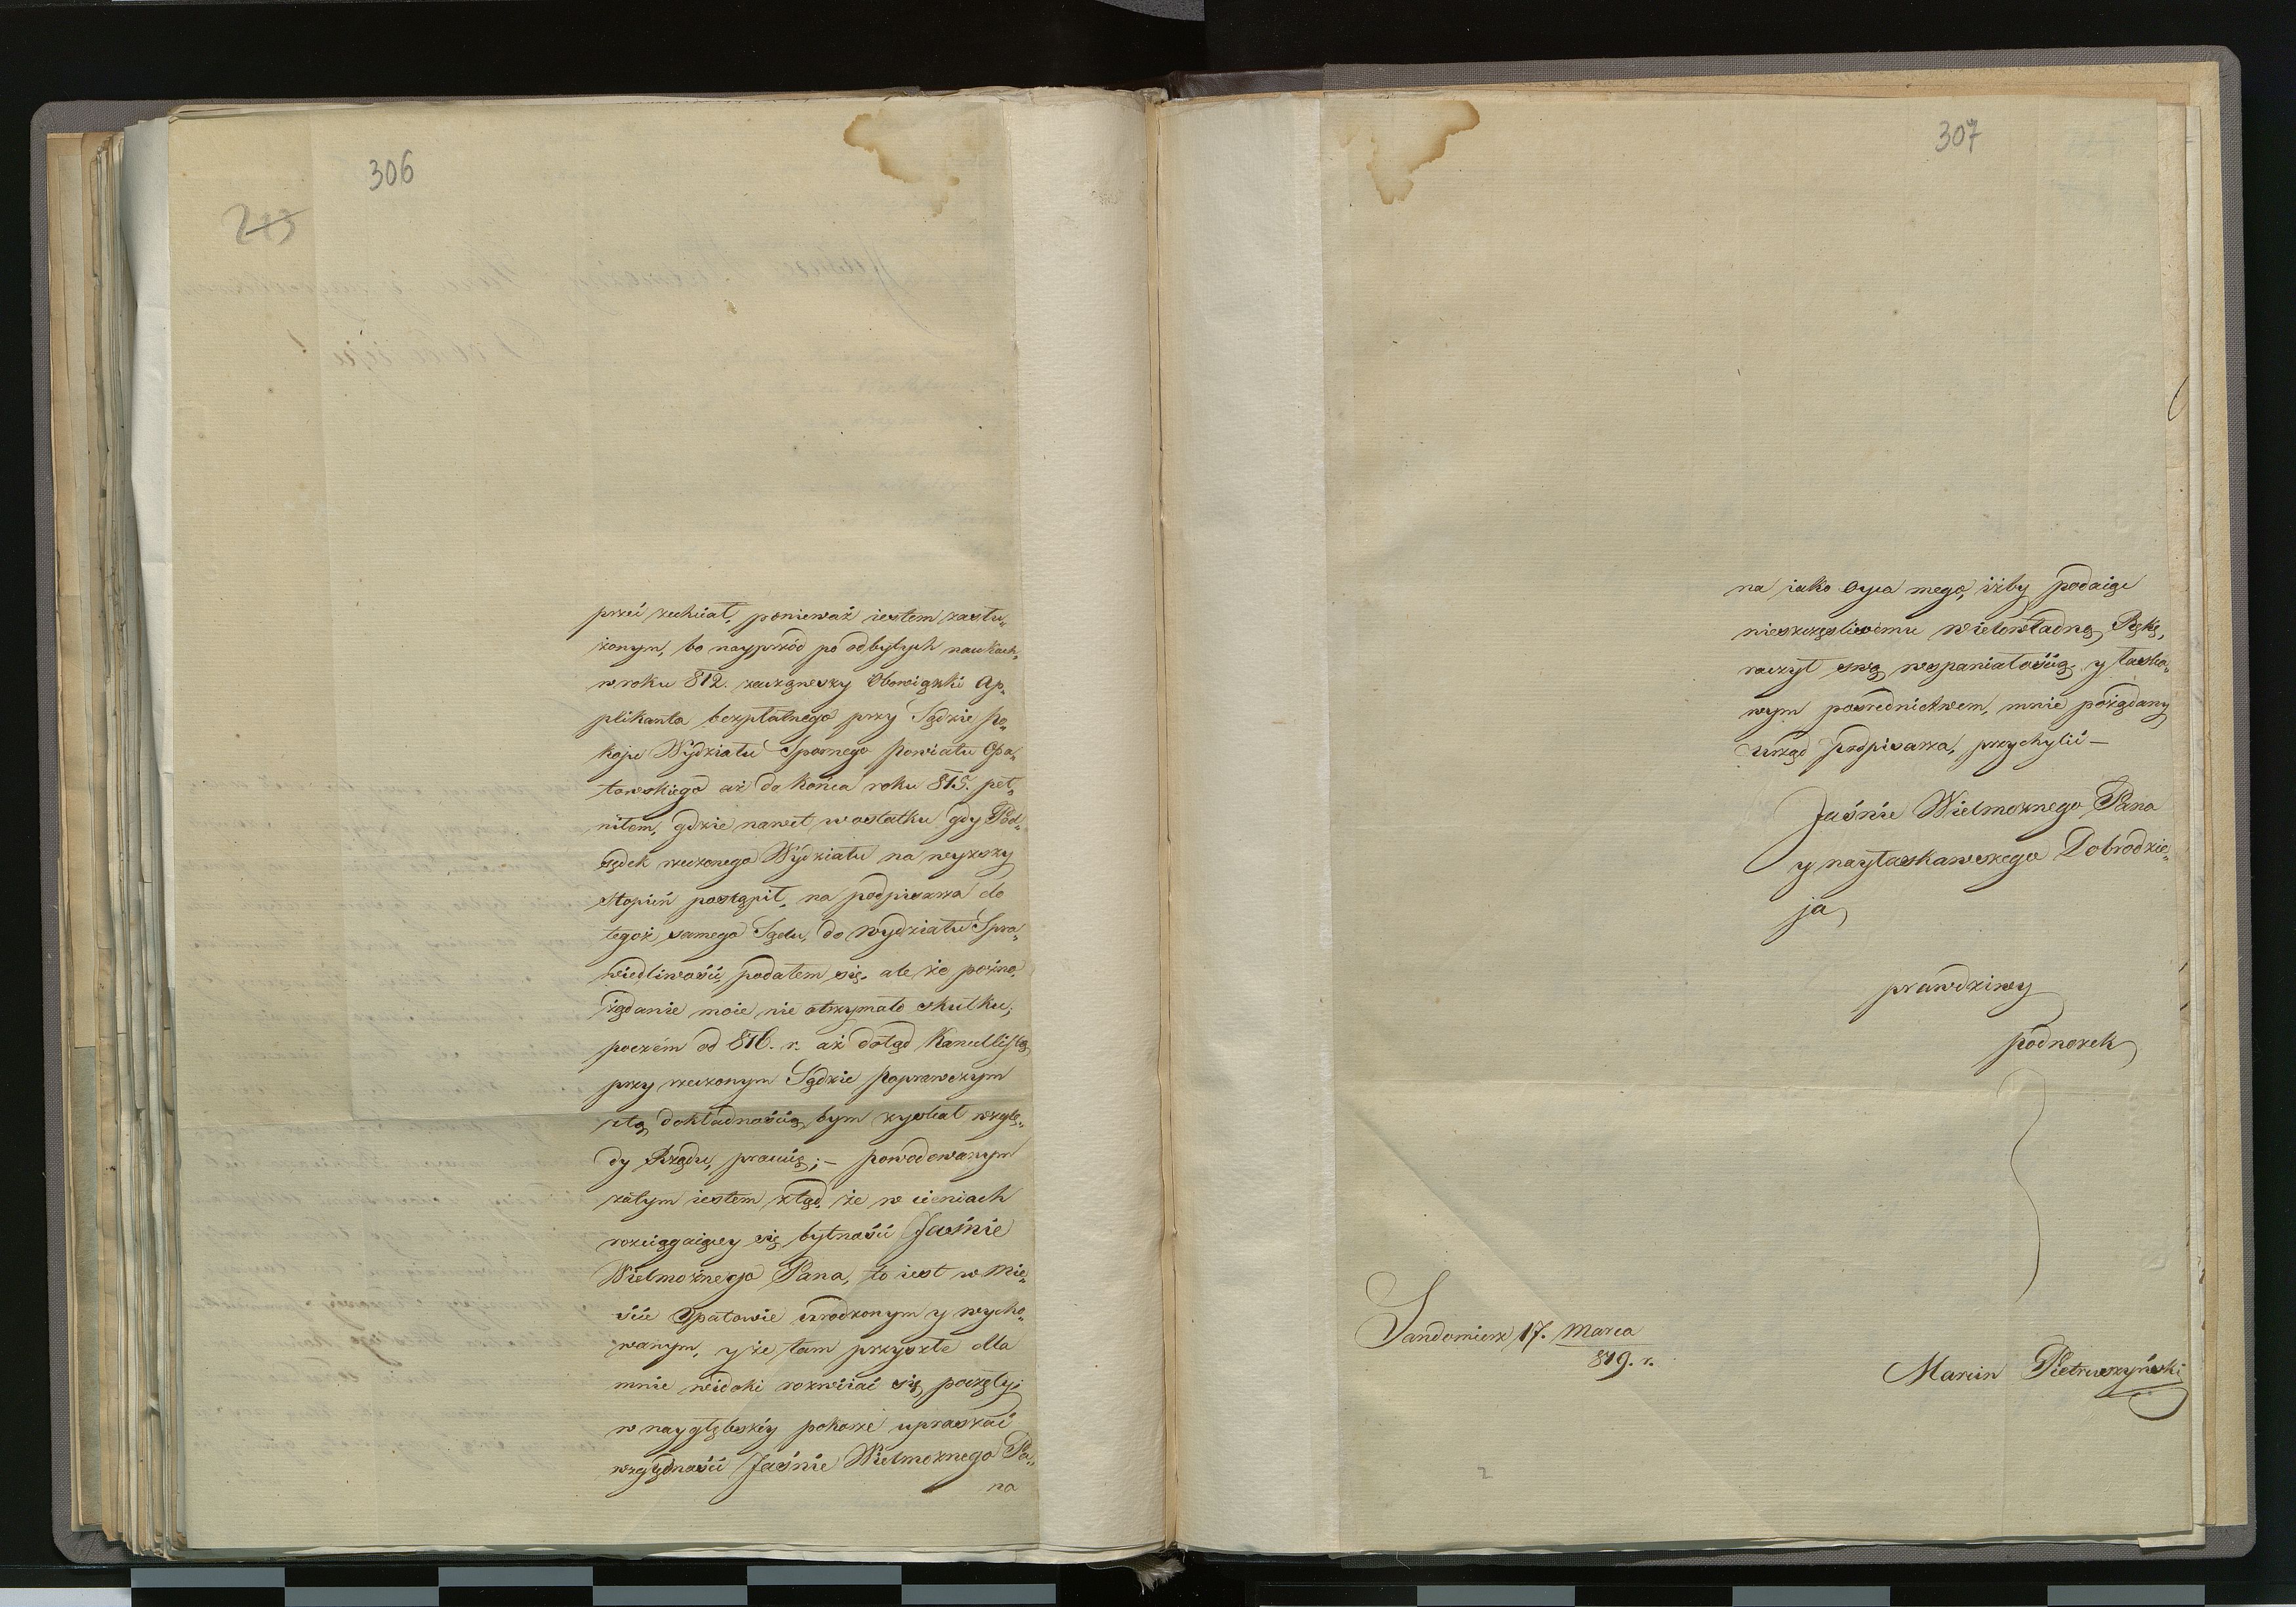 306
213
przeć zechciał, ponieważ iestem zasłu„
żonym, bo nayprzód po odbytych naukach,
w roku 812. zacząwszy Obowiązki Ap„
plikanta bezpłatnego przy Sądzie Po„
koju Wydziału Spornego Powiatu Opa„
towskiego aż do końca roku 815. peł„
niłem, gdzie nawet w ostatku gdy Pod„
sędek rzeczonego Wydziału na wyższy
stopień postąpił, na podpisarza do
tegoż samego Sądu, do Wydziału Spra„
wiedliwości, podałem się, ale że poźno,
żądanie moie nie otrzymało skutku;
poczém od 816. r. aż dotąd Kancellistą
przy rzeczonym Sądzie Poprawczym
z tą dokładnością, bym zyskał wzglę„
dy Rządu, pracuię; – powodowanym
zatym iestem ztąd, że w cieniach
rozciągaiącey się bytności Jaśnie
Wielmożnego Pana, to iest w Mie„
ście Opatowie urodzonym y wycho„
wanym, y że tam przyszłe dla
mnie widoki rozwiiać się poczęły;
w naygłębszéy pokorze upraszać
względności Jaśnie Wielmożnego Pa„
na
307
na iako Oyca mego, iżby podaiąc
nieszczęśliwemu wielowładną Rękę,
raczył swą wspaniałością y łaska„
wym pośrednictwem, mnie pożądany
Urząd podpisarza, przychylić –
Jaśnie Wielmożnego Pana
y nayłaskawszego Dobrodzie„
ja
prawdziwy
podnożek
Sandomierz 17. Marca
819. r.
Marcin Pietruszyński
2